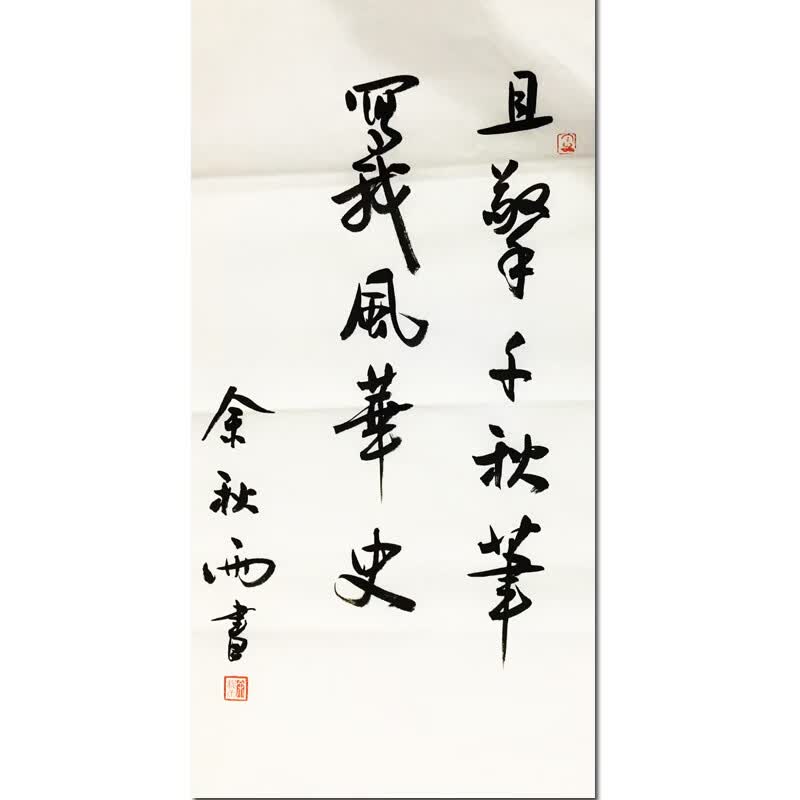 且擎千秋筆
寫我風華史
余秋雨書